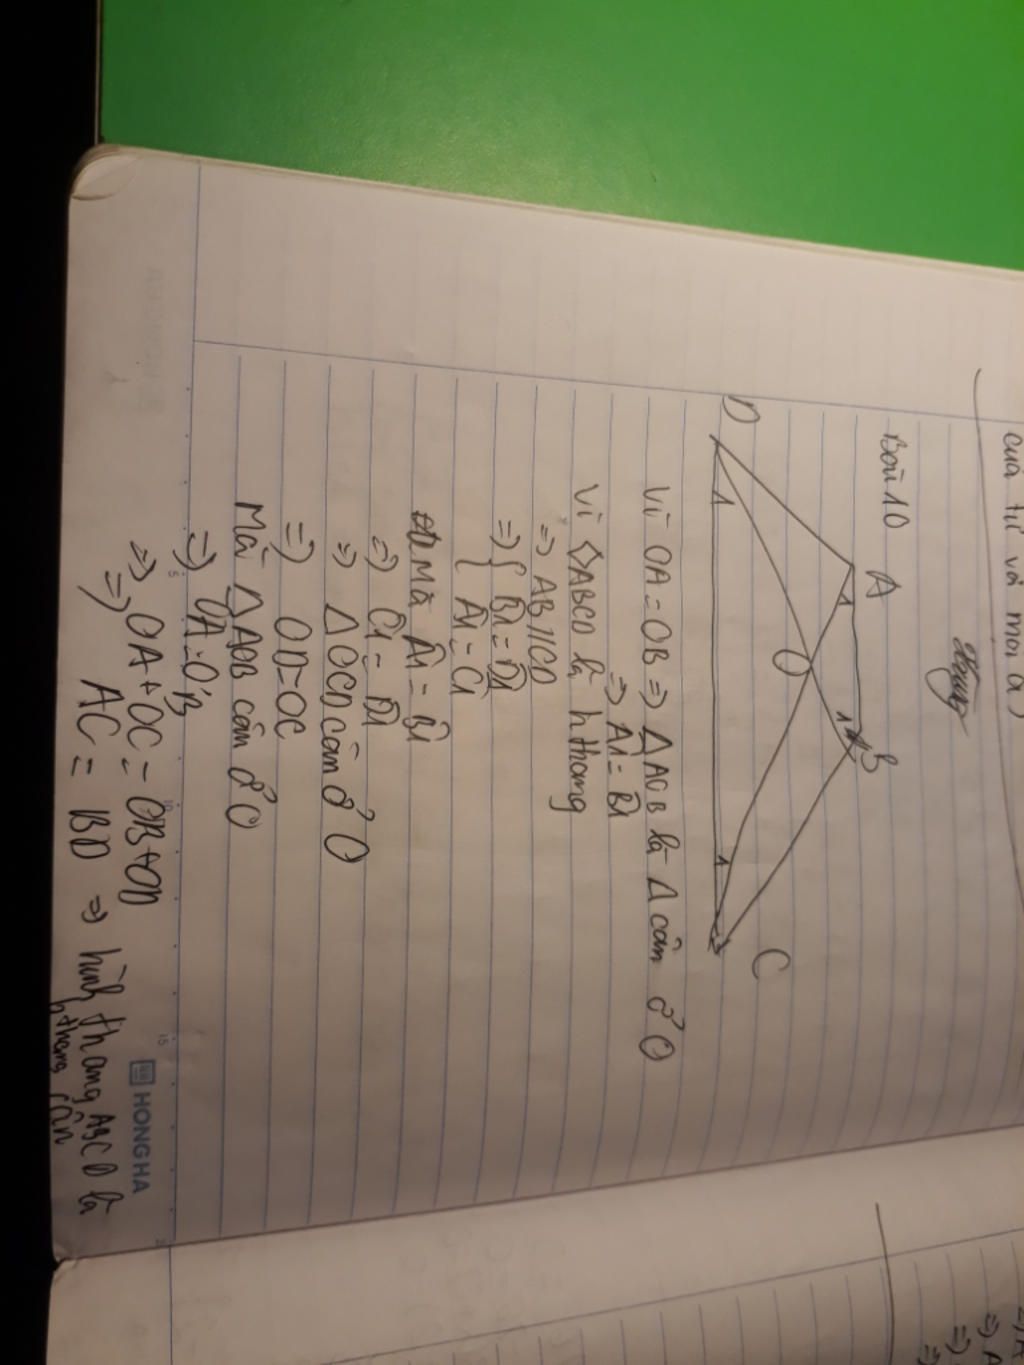 của tứ và mọi a)
Bài 10
A
B
1
1
O
D
1
1
C
Vì OA = OB => ΔAOB là Δ cân ở O
=> Â1 = B̂1
Vì ◇ABCD là hthang
=> AB//CD
=> { B̂1 = D̂1
{ Â1 = Ĉ1
Mà Â1 = B̂1
=> Ĉ1 = D̂1
=> ΔOCD cân ở O
=> OD = OC
Mà ΔAOB cân ở O
=> OA = OB
=> OA + OC = OB + OD
=> AC = BD => hình thang ABCD là
hthang cân
5
10
15
HONG HA